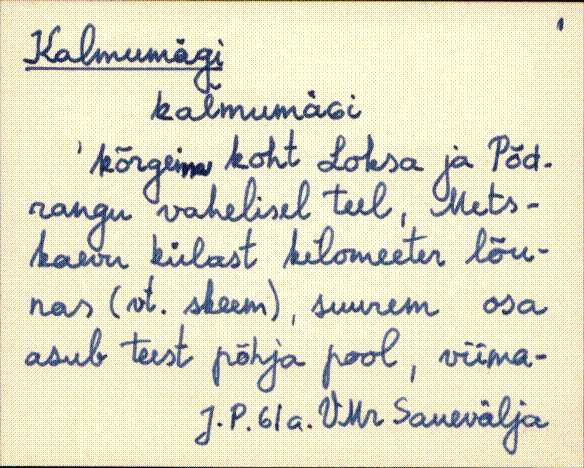 Kalmumägi
kalmumäGi
'kõrgeim koht Loksa ja Põd-
rangu vahelisel teel, Mets-
kaevu külast kilomeeter lõu-
nas (vt. skeem), suurem osa
asub teest põhja pool, viima-
J.P. 61a. VMr Sauevälja